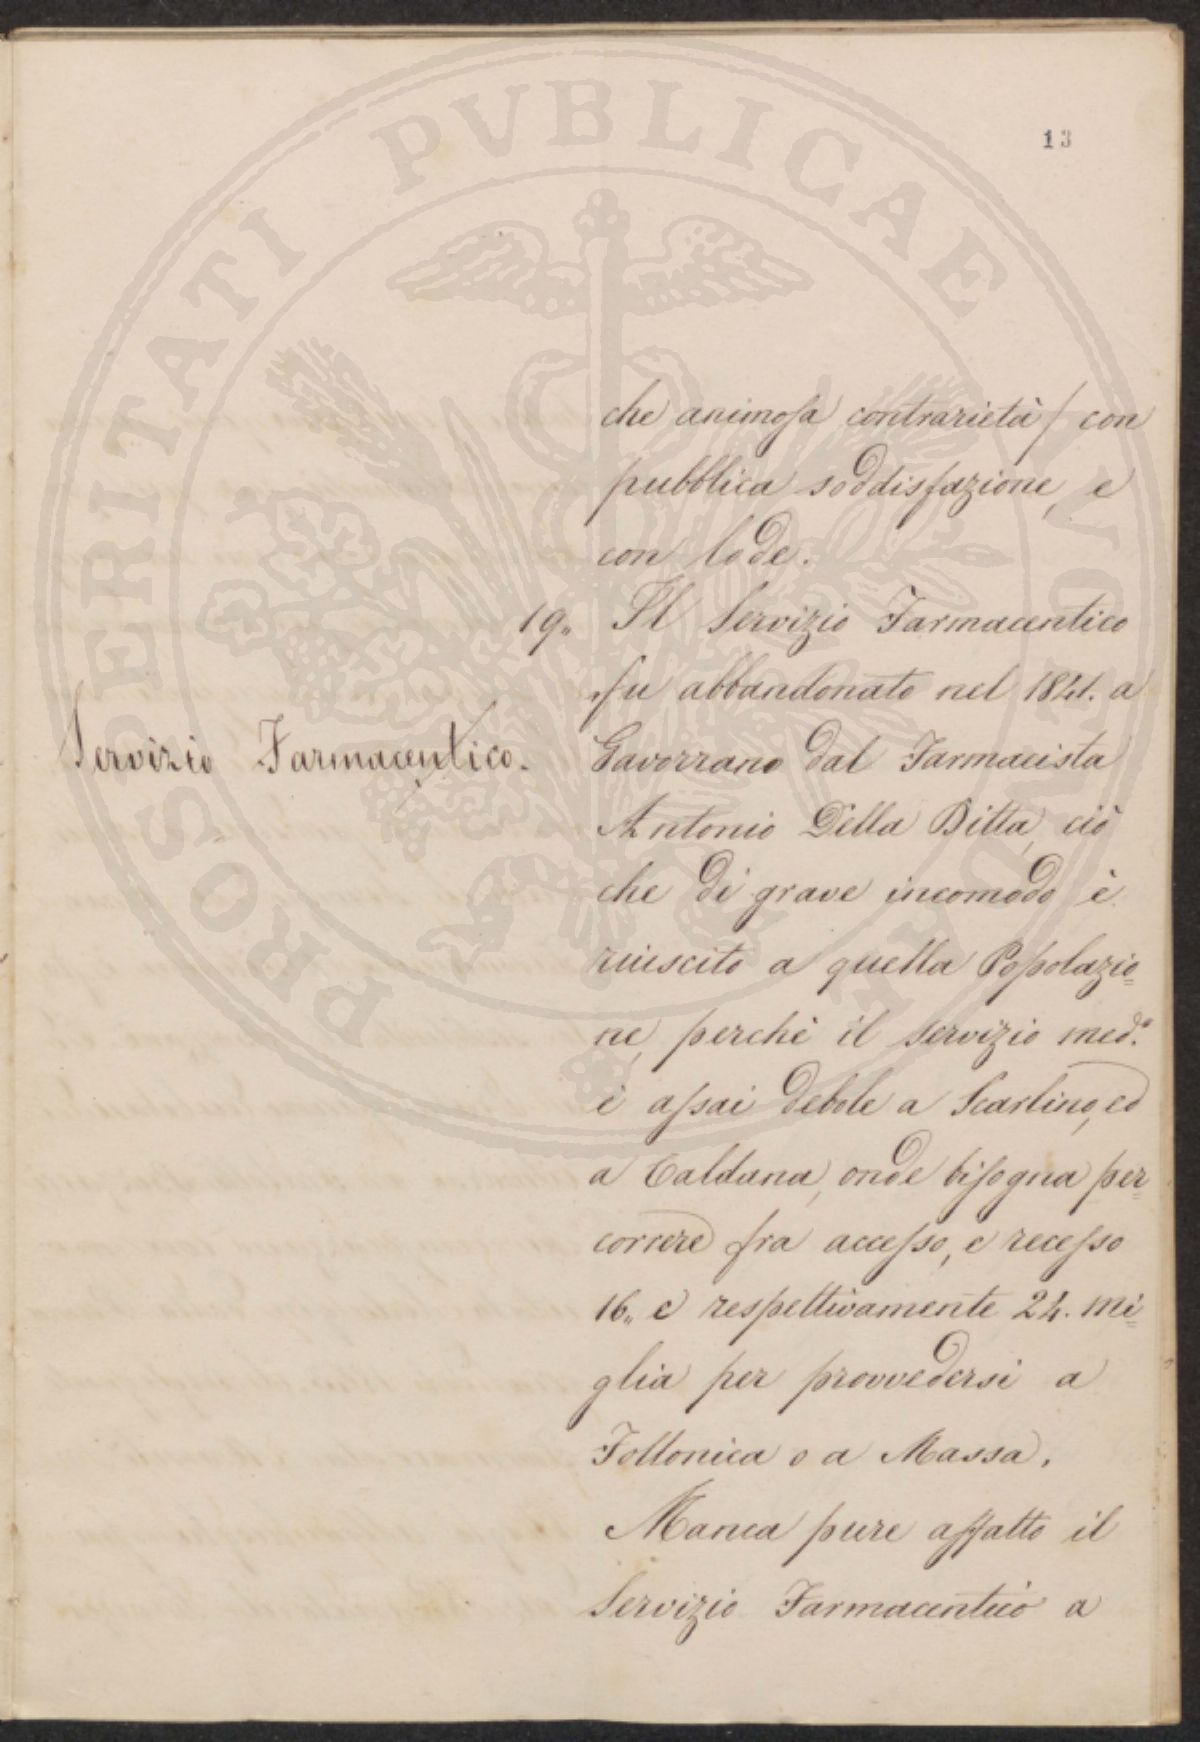 PROSPERITATI PVBLICAE
13
che animosa contrarietà / con
pubblica soddisfazione, e
con lode.
19. Il Servizio Farmaceutico
fu abbandonato nel 1841. a
Servizio Farmaceutico.
Gavorrano dal Farmacista
Antonio Della Ditta, ciò
che di grave incomodo è
riuscito a quella Popolazio=
ne, perchè il servizio med.º
è assai debole a Scarlino, ed
a Caldana, onde bisogna per=
correre fra accesso, e recesso
16. e respettivamente 24. mi=
glia per provvedersi a
Follonica o a Massa.
Manca pure affatto il
Servizio Farmaceutico a